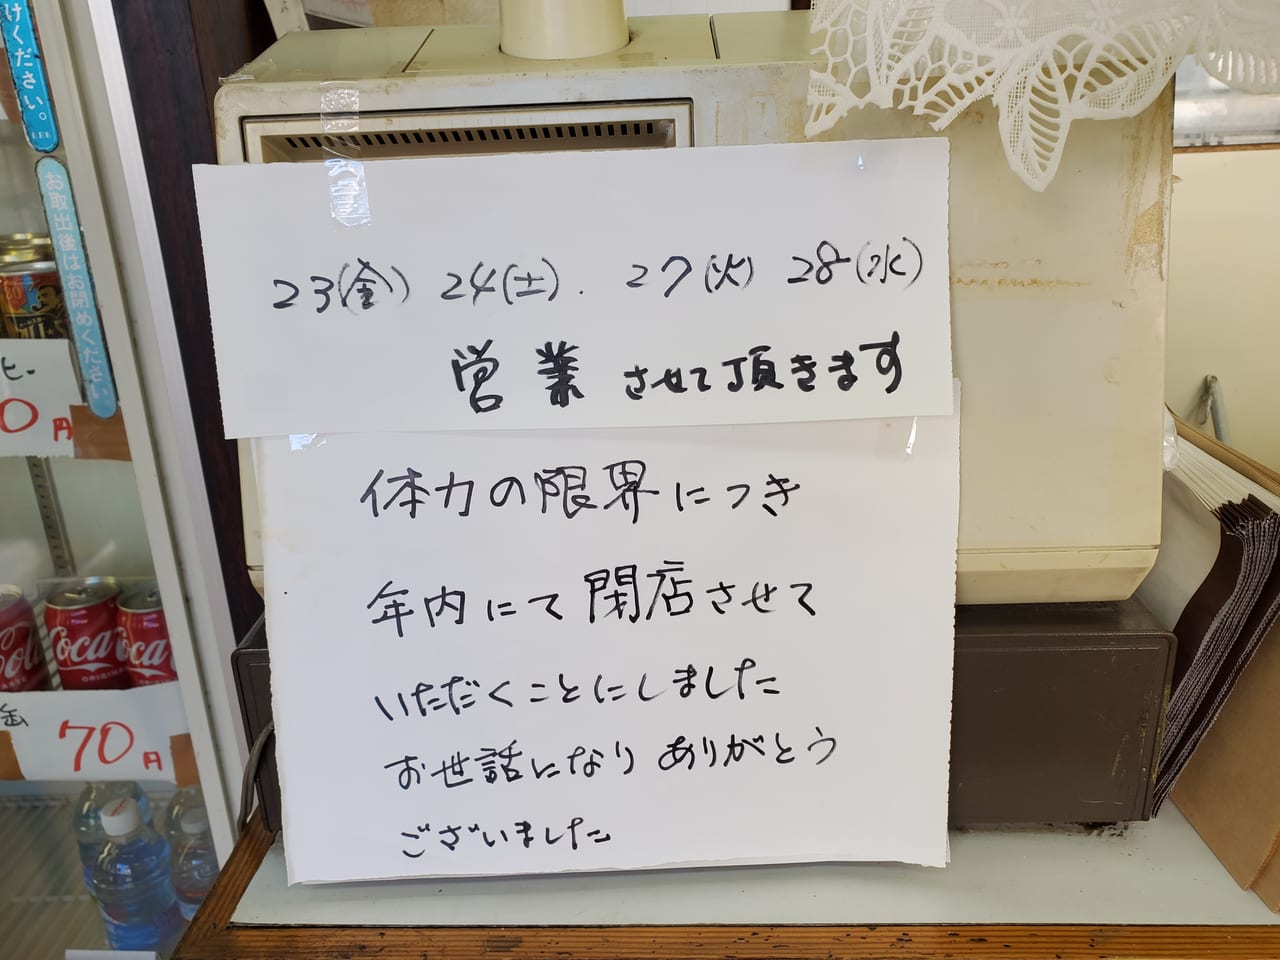 けください。
お取出後はお閉めください
23(金) 24(土). 27(火) 28(水)
営業させて頂きます
体力の限界につき
年内にて閉店させて
いただくことにしました
お世話になり ありがとう
ございました
ヒー
0円
Coca
Coca
缶
70円